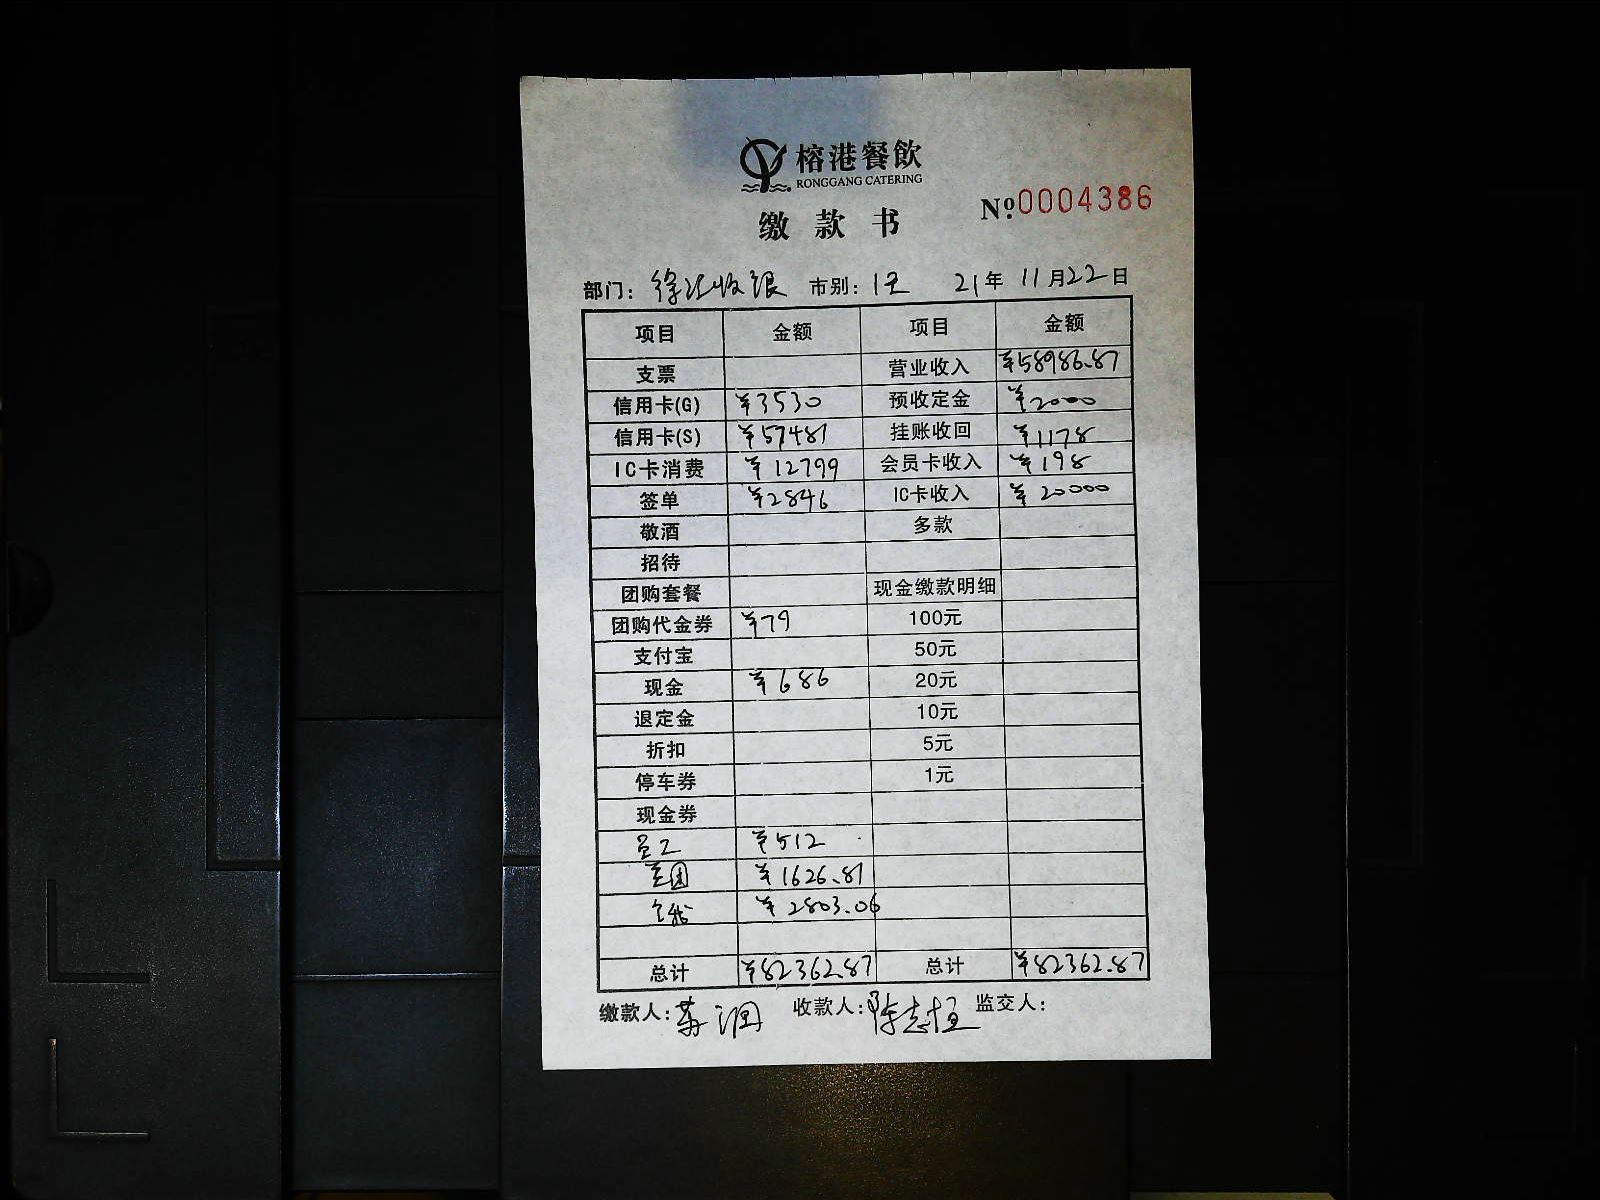 榕港餐飲
RONGGANG CATERING
缴款书
№0004386
部门：徐汇收银 市别： 21年 11月22日
项目 金额 项目 金额
支票 营业收入 ¥58986.87
信用卡(G) ¥3530 预收定金 ¥2000
信用卡(S) ¥57481 挂账收回 ¥1178
IC卡消费 ¥12799 会员卡收入 ¥198
签单 ¥2846 IC卡收入 ¥20000
敬酒 多款
招待
团购套餐 现金缴款明细
团购代金券 ¥79 100元
支付宝 50元
现金 ¥686 20元
退定金 10元
折扣 5元
停车券 1元
现金券
员工 ¥512
美团 ¥1626.81
¥2803.06
总计 ¥82362.87 总计 ¥82362.87
缴款人： 收款人：陈志恒 监交人：